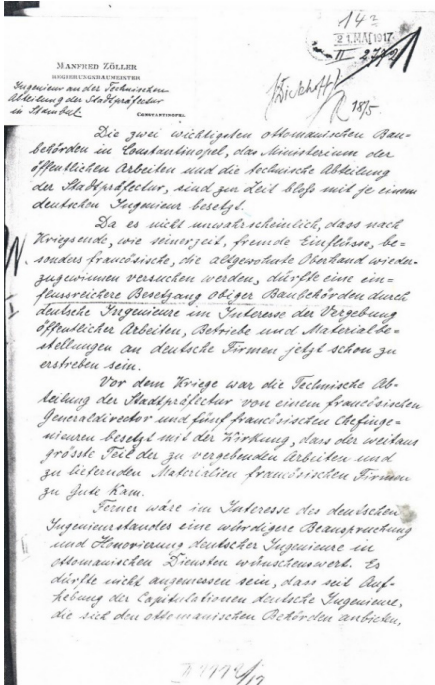 14a
21. MAI 1917.
MANFRED ZÖLLER
REGIERUNGSBAUMEISTER
Ingenieur an der Technischen
Abteilung der Stadtpräfectur
in Stambul
CONSTANTINOPEL
18/5.
Die zwei wichtigsten ottomanischen Bau-
behörden in Constantinopel, das Ministerium der
öffentlichen Arbeiten und die technische Abteilung
der Stadtpräfectur, sind zur Zeit bloss mit je einem
deutschen Ingenieur besetzt.
Da es nicht unwahrscheinlich, dass nach
Kriegsende, wie seinerzeit, fremde Einflüsse, be-
sonders französische, die altgewohnte Oberhand wieder-
zugewinnen versuchen werden, dürfte eine ein-
flussreichere Besetzung obiger Baubehörden durch
deutsche Ingenieure im Interesse der Vergebung
öffentlicher Arbeiten, Betriebe und Materialbe-
stellungen an deutsche Firmen jetzt schon zu
erstreben sein.
Vor dem Kriege war die Technische Ab-
teilung der Stadtpräfectur von einem französischen
Generaldirector und fünf französischen Chefinge-
nieuren besetzt mit der Wirkung, dass der weitaus
grösste Teil der zu vergebenden Arbeiten und
zu liefernden Materialien französischen Firmen
zu Gute kam.
Ferner wäre im Interesse des deutschen
Ingenieurstandes eine würdigere Beanspruchung
und Honorierung deutscher Ingenieure in
ottomanischen Diensten wünschenswert. Es
dürfte nicht angemessen sein, dass seit Auf-
hebung der Capitulationen deutsche Ingenieure,
die sich den ottomanischen Behörden anbieten,